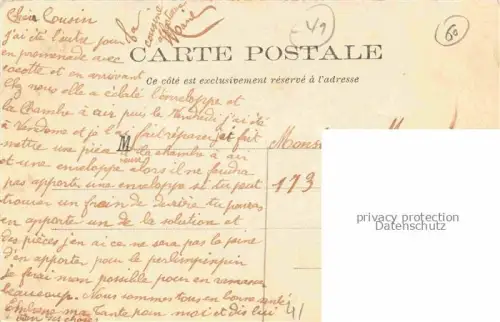 Cher Cousin
j'ai été l'autre jour
en promenade avec
cocotte et en arrivant
Chez nous elle a éclaté l'enveloppe et
la Chambre à air puis le Vendredi j'ai été
à Vendome et je l'ai fait réparer j'ai fait
mettre une pièce à la chambre à air
et une enveloppe neuve alors il ne faudra
pas apporter une enveloppe si tu peut
trouver un frein de derrière tu pourras
en apporte un de la solution et
des pièces j'en ai ce ne sera pas la peine
d'en apporter pour le perlimpinpin
je ferai mon possible pour en ramasser
beaucoup. Nous sommes tous en bonne santé
Embrasse ma tante pour moi et dis lui
ta
cousine
49
60
CARTE POSTALE
Ce côté est exclusivement réservé à l'adresse
M
Mons
173
41
privacy protection
Datenschutz